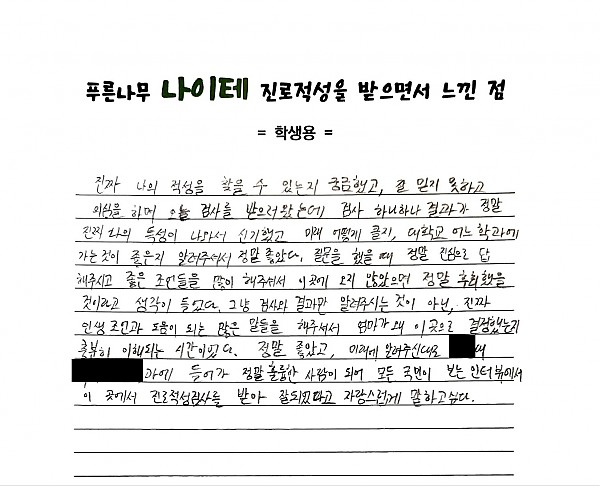 푸른나무 나이테 진로적성을 받으면서 느낀 점
= 학생용 =
진짜 나의 적성을 찾을 수 있는지 궁금했고, 잘 믿지 못하고
의심을 하며 오늘 검사를 받으러왔는데 검사 하나하나 결과가 정말
진짜 나의 특성이 나와서 신기했고 미래 어떻게 할지, 대학교 어느 학과에
가는것이 좋은지 알려주셔서 정말 좋았다. 질문을 했을 때 정말 진심으로 답
해주시고 좋은 조언들을 많이 해주셔서 이곳에 오지 않았으면 정말 후회했을
것이라고 생각이 들었다. 그냥 검사와 결과만 알려주시는 것이 아닌, 진짜
인생 조언과 도움이 되는 많은 말들을 해주셔서 엄마가 왜 이 곳으로 결정했는지
충분히 이해되는 시간이었다. 정말 좋았고, 미래에 알려주신대로 대
과에 들어가 정말 훌륭한 사람이 되어 모든 국민이 보는 인터뷰에서
이 곳에서 진로적성검사를 받아 잘되었다고 자랑스럽게 말하고싶다.